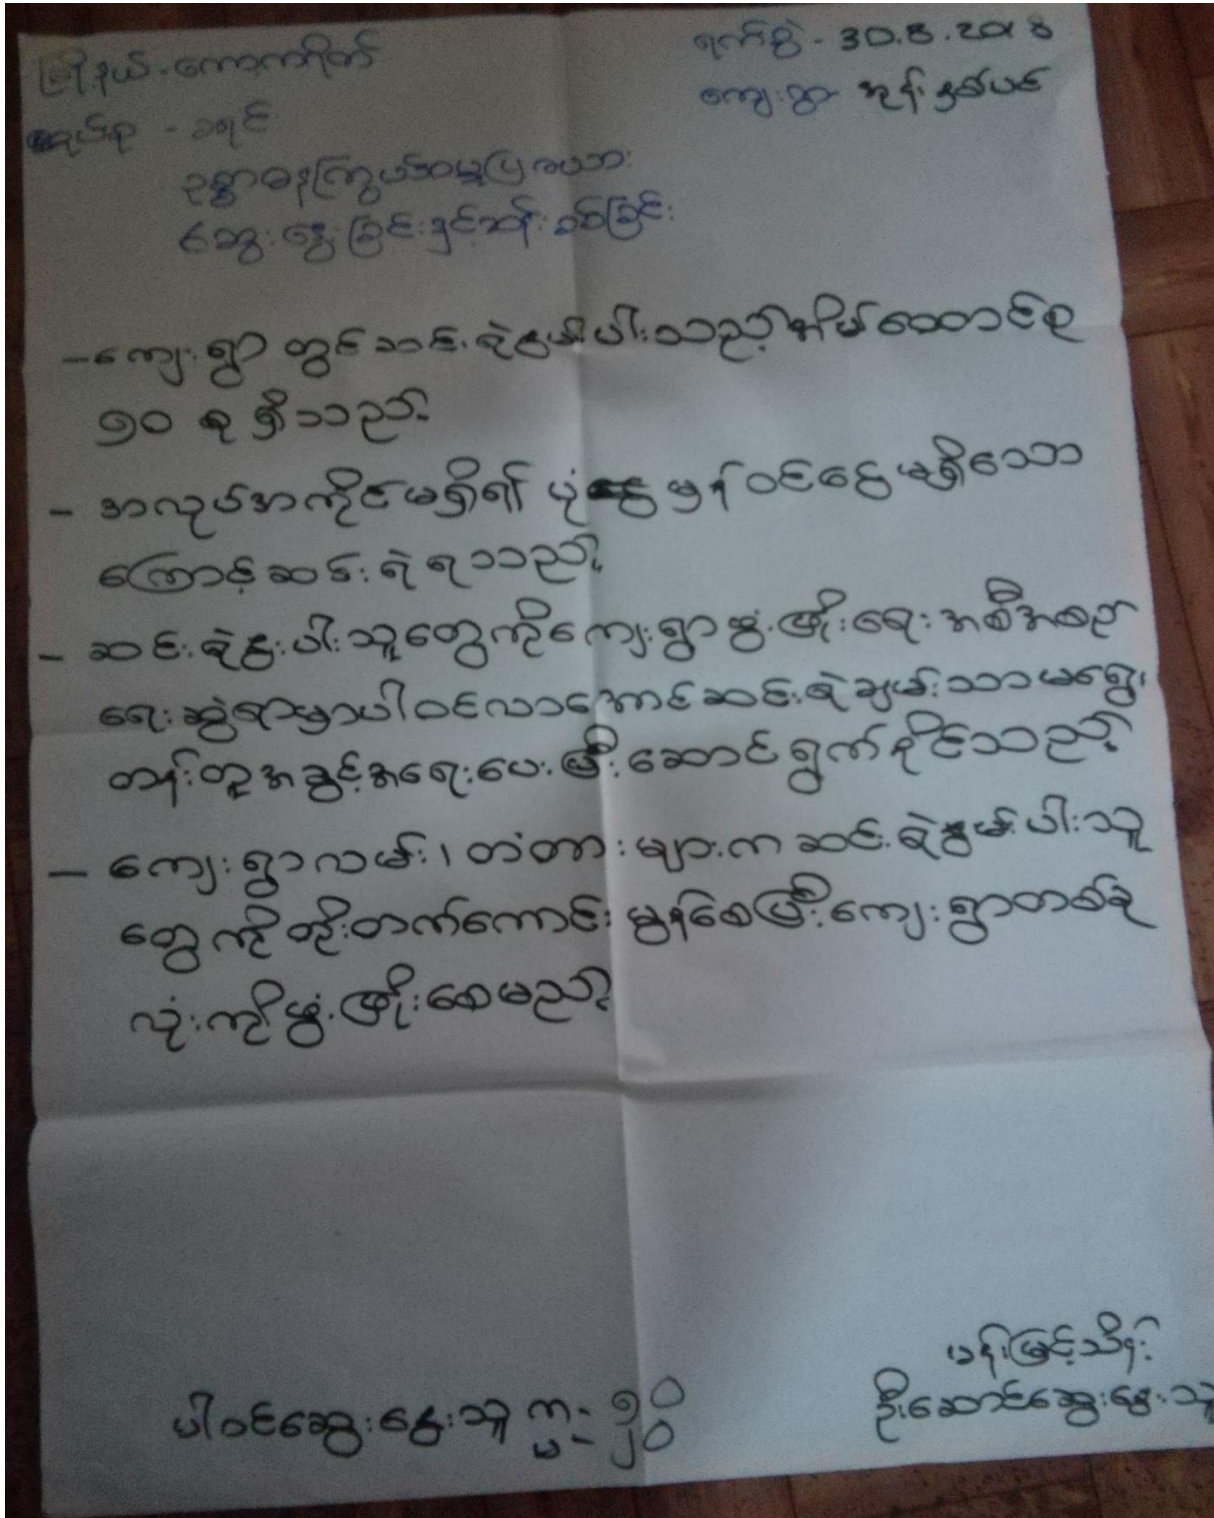 မြို့နယ် - ကော့ကရိတ်
ရက်စွဲ - 30.8.2018
ကျေးရွာ - အုန်းနှစ်ပင်
အုပ်စု - ခရင်
ဥစ္စာဓနကြွယ်ဝမှုပြဇယား
ဆွေးနွေးခြင်းနှင့်ဆန်းစစ်ခြင်း
- ကျေးရွာတွင်ဆင်းရဲနွမ်းပါးသည့်အိမ်ထောင်စု
၅၀ စုရှိသည်။
- အလုပ်အကိုင်မရှိ၍ ပုံမှန်ဝင်ငွေမရှိသော
ကြောင့်ဆင်းရဲရသည်။
- ဆင်းရဲနွမ်းပါးသူတွေကိုကျေးရွာဖွံ့ဖြိုးရေးအစီအစဉ်
ရေးဆွဲရာမှာပါဝင်လာအောင်ဆင်းရဲချမ်းသာမရွေး
တန်းတူအခွင့်အရေးပေးပြီးဆောင်ရွက်နိုင်သည်။
- ကျေးရွာလမ်း၊ တံတားများကဆင်းရဲနွမ်းပါးသူ
တွေကိုတိုးတက်ကောင်းမွန်စေပြီးကျေးရွာတစ်ခု
လုံးကိုဖွံ့ဖြိုးစေမည်။
မန်းမြင့်သိန်း
ပါဝင်ဆွေးနွေးသူ
ဦးဆောင်ဆွေးနွေးသူ